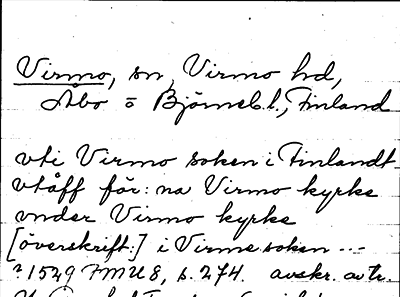 Virmo, sn, Virmo hd,
Åbo o Björneb. l., Finland
vti Virmo soken i Finlandt
vtåff för: na Virmo kyrke
vnder Virmo kyrke
[överskrift:] i Virme soken ---
? 1529 FMU 8, s. 274. avskr. av tr.